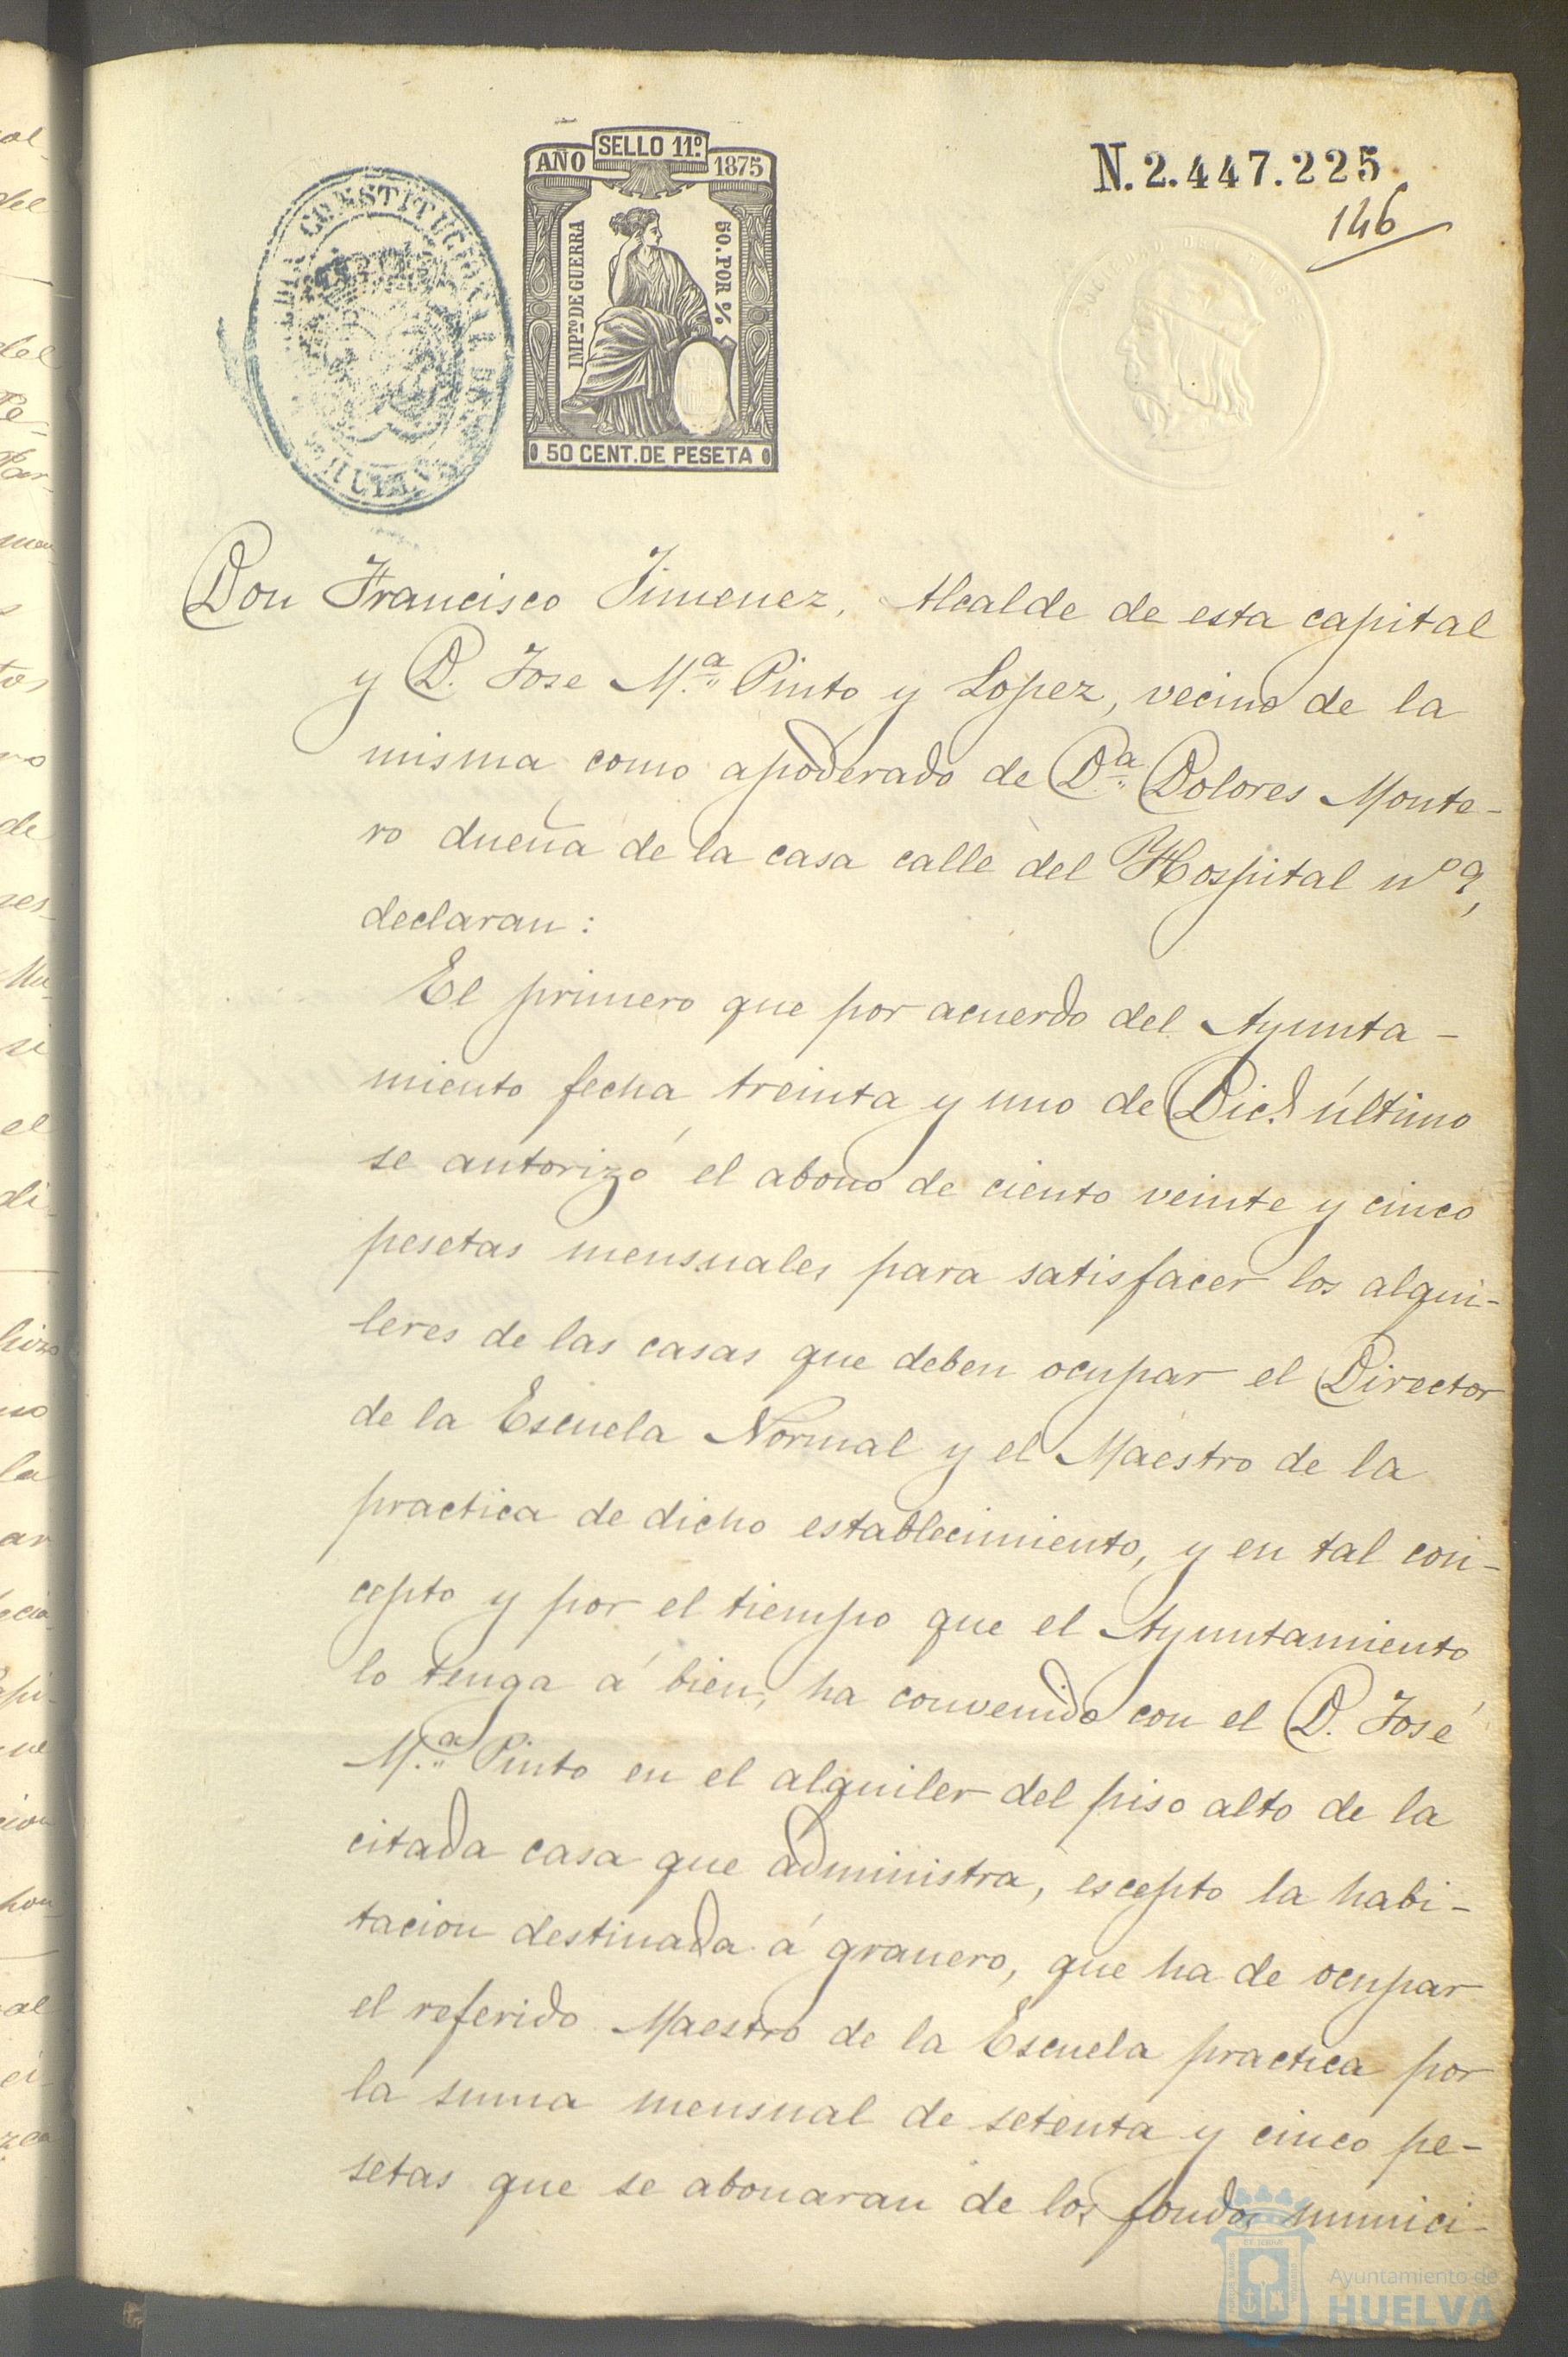 SELLO 11.º
AÑO 1875
IMP.to DE GUERRA
50 POR %
50 CENT. DE PESETA
N. 2.447.225
146
CONSTITUCIONAL
HUELVA
Don Francisco Jimenez, Alcalde de esta capital
y D. Jose M.ª Pinto y Lopez, vecino de la
misma como apoderado de D.ª Dolores Monte-
ro dueña de la casa calle del Hospital nº 9,
declaran:
El primero que por acuerdo del Ayunta-
miento fecha treinta y uno de Dic.e último
se autorizó el abono de ciento veinte y cinco
pesetas mensuales para satisfacer los alqui-
leres de las casas que deben ocupar el Director
de la Escuela Normal y el Maestro de la
practica de dicho establecimiento, y en tal con-
cepto y por el tiempo que el Ayuntamiento
lo tenga á bien, ha convenido con el D. José
M.ª Pinto en el alquiler del piso alto de la
citada casa que administra, escepto la habi-
tacion destinada á granero, que ha de ocupar
el referido Maestro de la Escuela practica por
la suma mensual de setenta y cinco pe-
setas que se abonaran de los fondos munici-
Ayuntamiento de
HUELVA